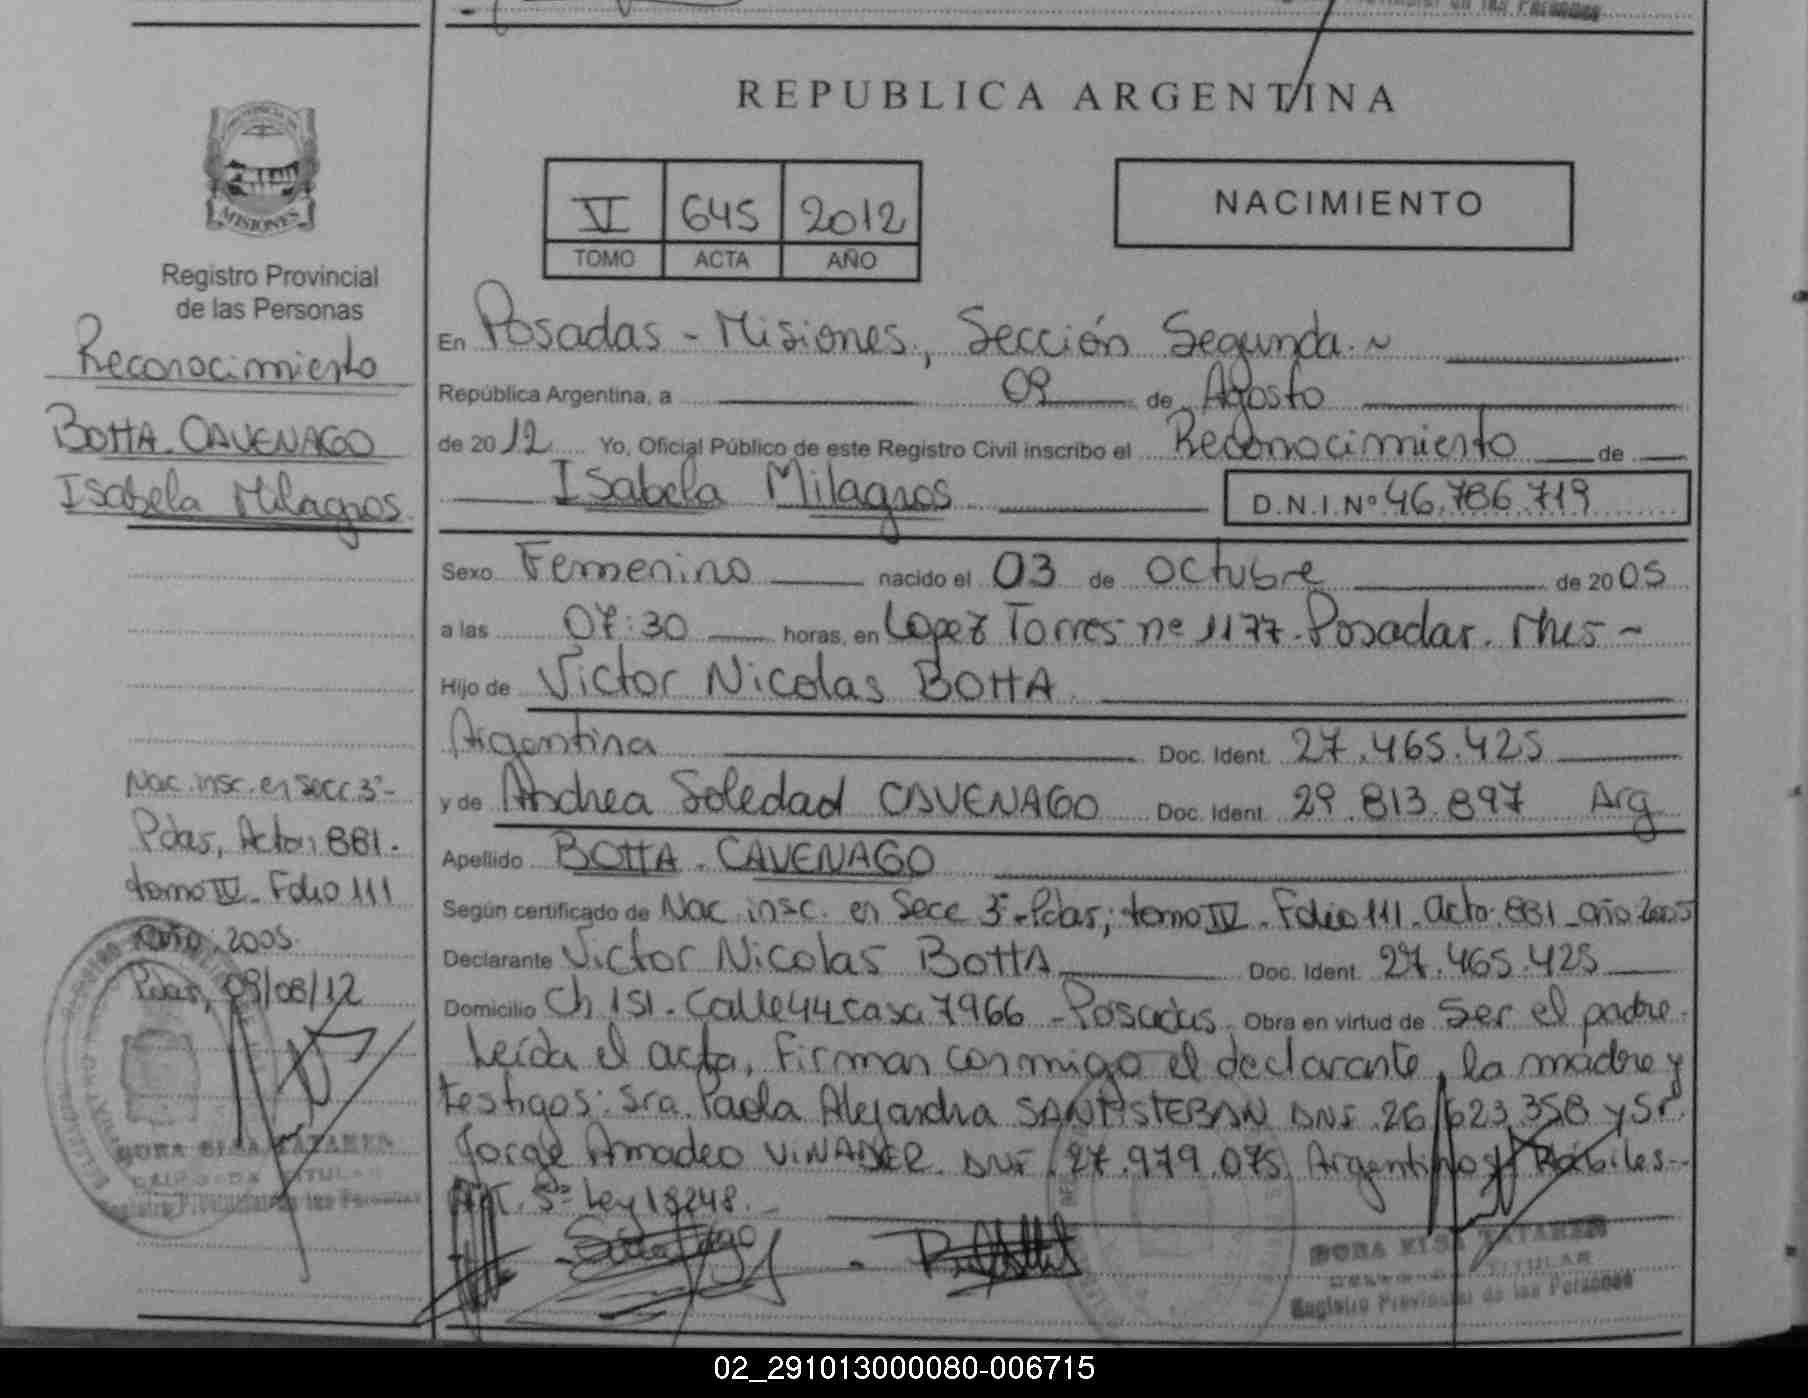 REPUBLICA ARGENTINA
MISIONES
Registro Provincial
de las Personas
Reconocimiento
BOTTA CAVENAGO
Isabela Milagros
Nac. insc. en Secc 3º-
Pdas, Acta: 881.
tomo IV - Folio 111
Año: 2005.
Pdas, 09/08/12
VI 645 2012
TOMO ACTA AÑO
NACIMIENTO
En Posadas - Misiones, Sección Segunda. ~
República Argentina, a 09 de Agosto
de 2012 Yo, Oficial Público de este Registro Civil inscribo el Reconocimiento de
Isabela Milagros D.N.I.Nº 46.786.719
Sexo Femenino nacido el 03 de octubre de 2005
a las 07:30 horas, en Lopez Torres nº 1177. Posadas. Mnes -
Hijo de Victor Nicolas BOTTA
Argentina Doc. Ident. 27.465.425
y de Andrea Soledad CAVENAGO Doc. Ident. 29.813.897 Arg
Apellido BOTTA - CAVENAGO
Según certificado de Nac. insc. en Secc 3º-Pdas; tomo IV - Folio 111 - acta: 881 - año: 2005
Declarante Victor Nicolas BOTTA Doc. Ident. 27.465.425
Domicilio Ch 151 - Calle 44 casa 7966 - Posadas. Obra en virtud de Ser el padre.
Leída el acta, Firman conmigo el declarante, la madre y
testigos: Sra. Paola Alejandra SANTISTEBAN DNI. 26.623.358 y Sr.
Jorge Amadeo VINADER. DNI. 27.979.075 Argentinos Hábiles-
Art. 5º Ley 18248.
DORA ELSA TATAREN
TITULAR
Registro Provincial de las Personas
DORA ELSA TATAREN
TITULAR
Registro Provincial de las Personas
02_291013000080-006715